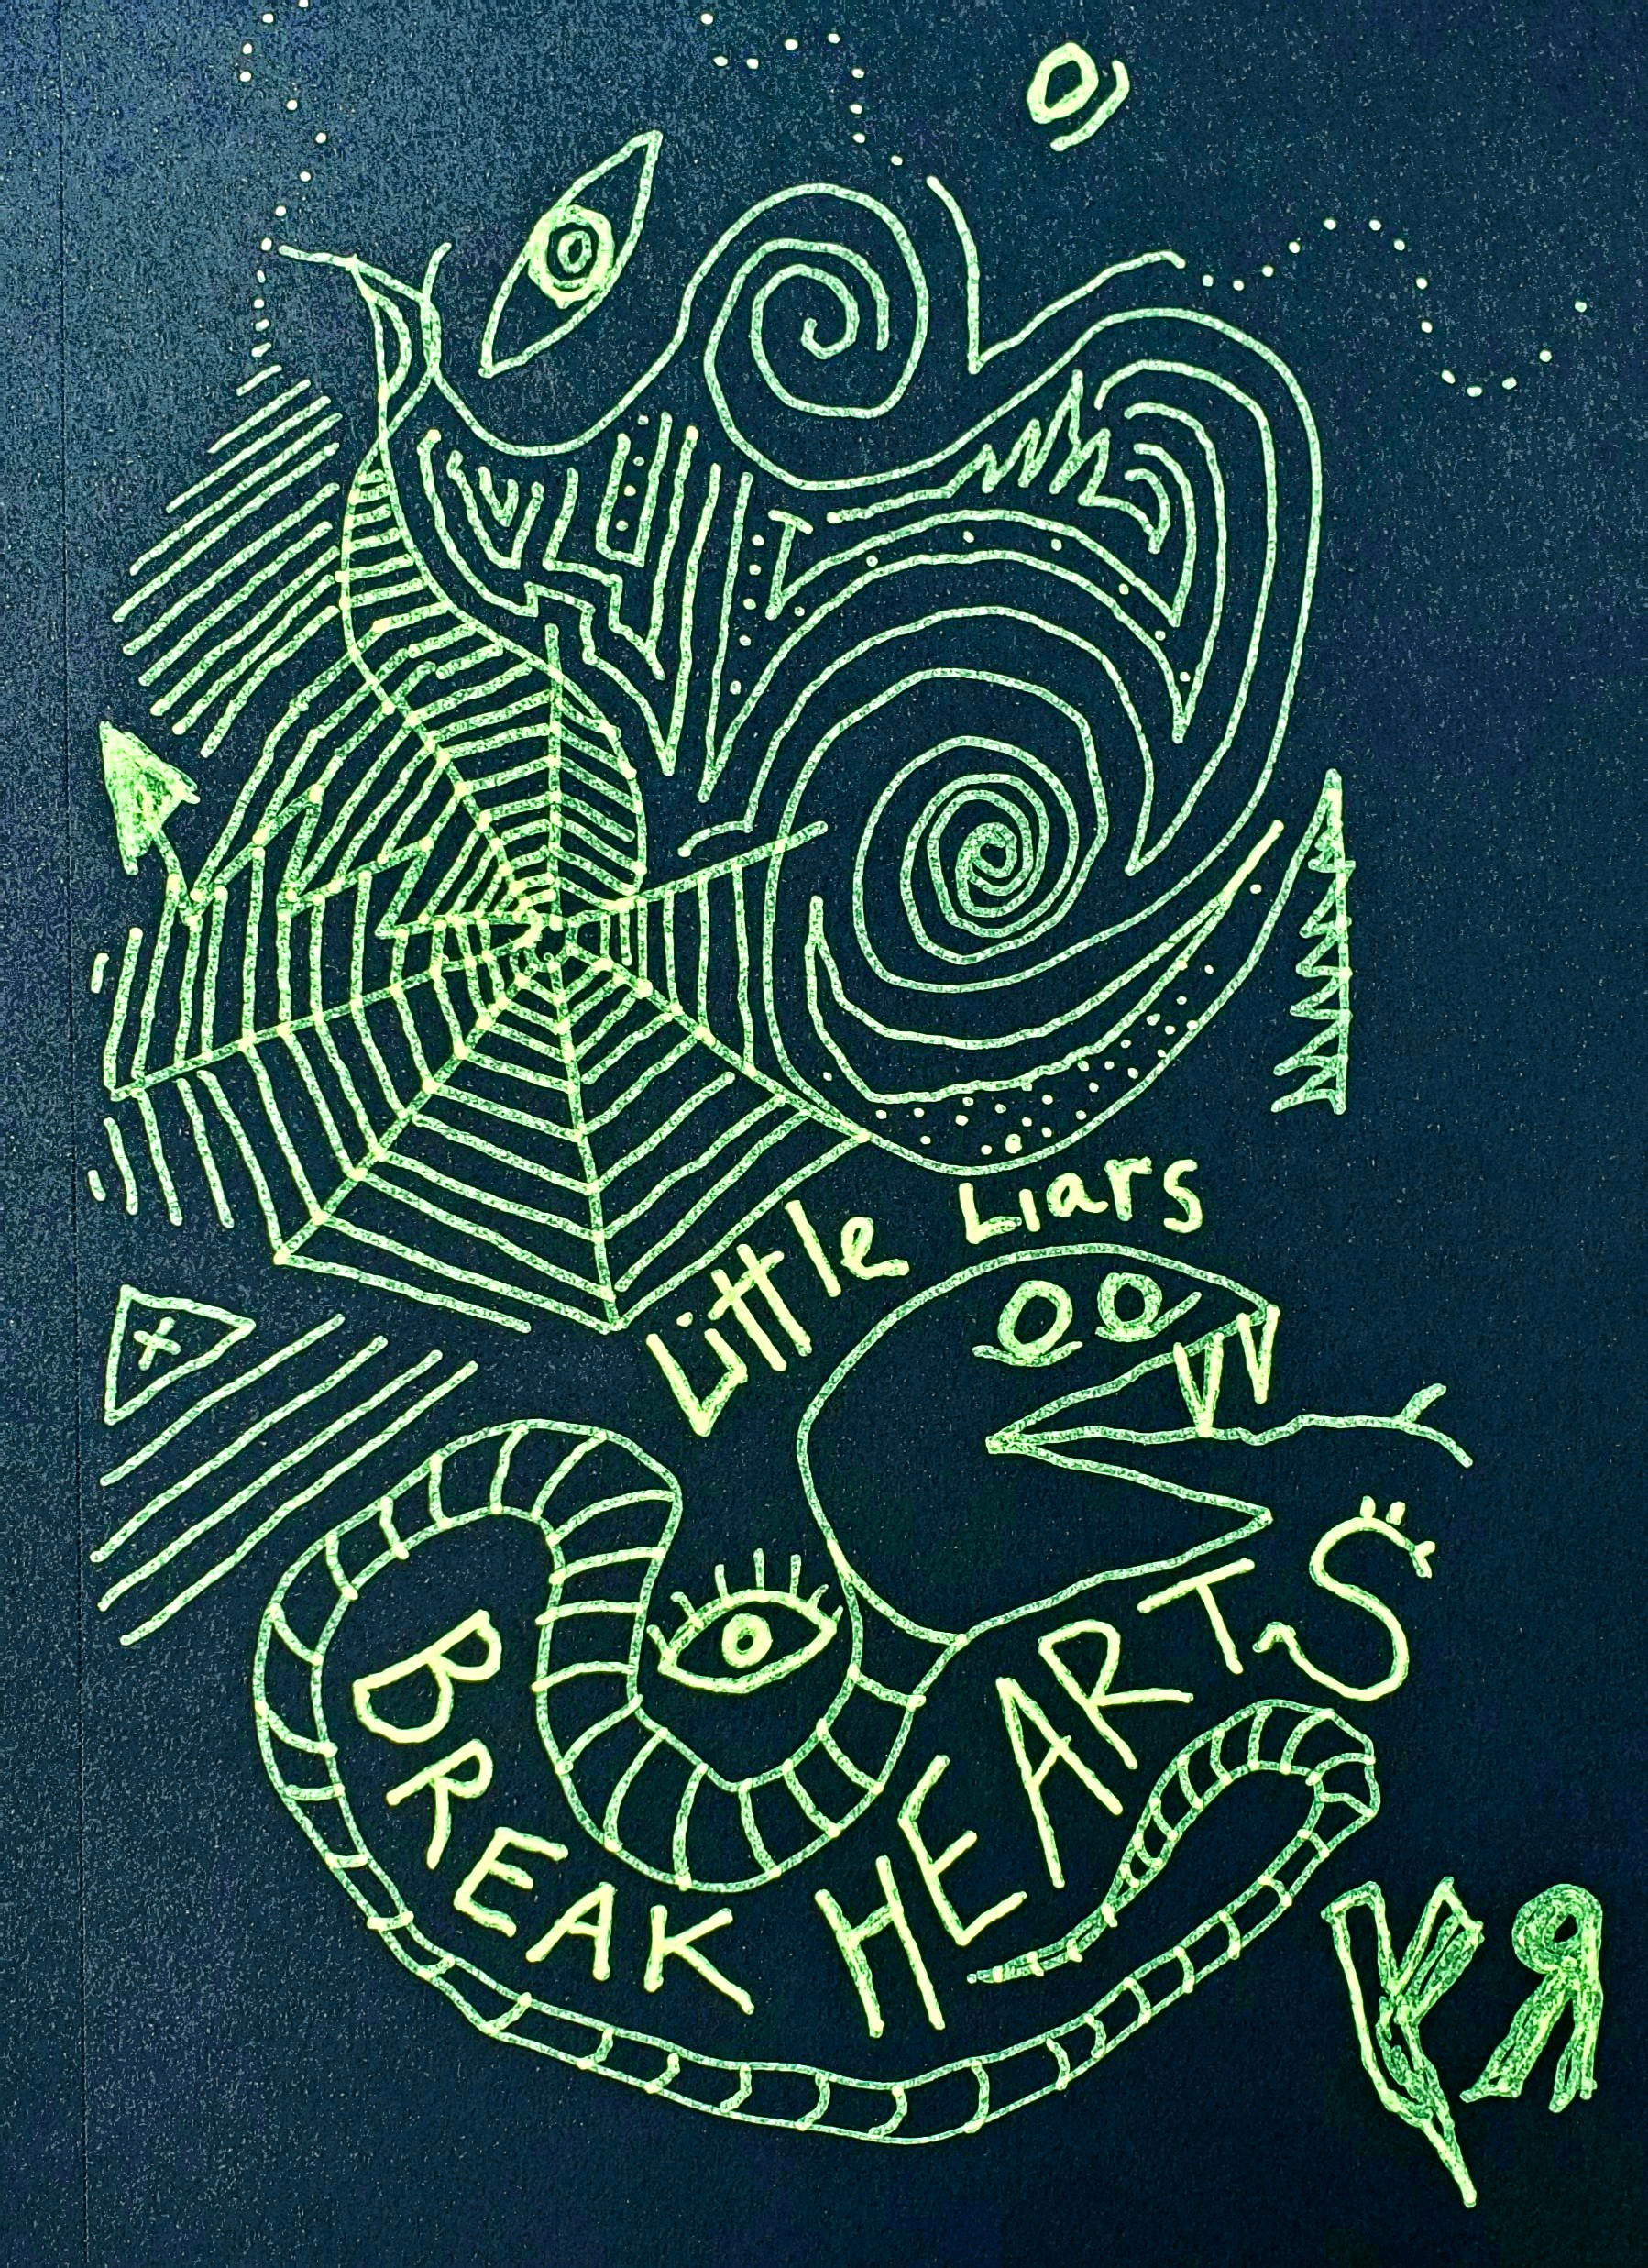 Little Liars
BREAK HEARTS
KЯ